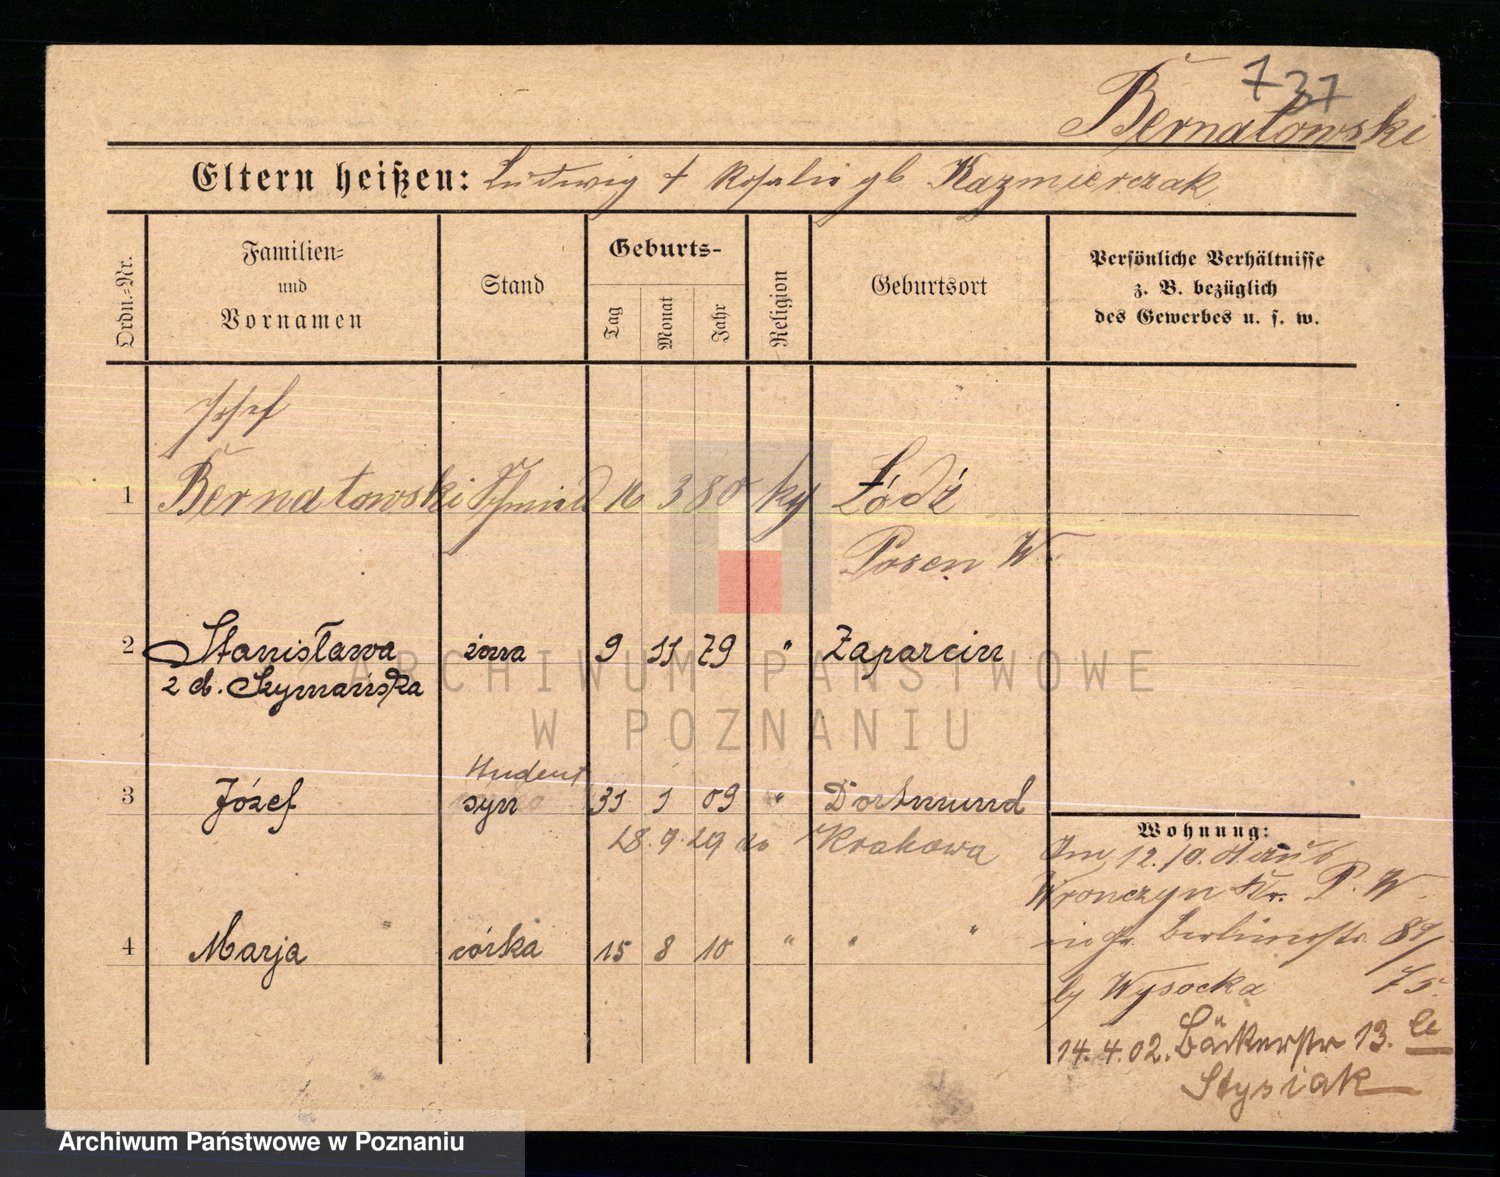 737
Bernatowski
Eltern heißen: Ludwig + Rosalie gb Kazmierczak
Ordn.-Nr.
Familien-
und
Vornamen
Stand
Geburts-
Tag
Monat
Jahr
Religion
Geburtsort
Persönliche Verhältnisse
z. B. bezüglich
des Gewerbes u. s. w.
Josef
1 Bernatowski Schmied 16 3 80 kth Łódź
Posen W.
2 Stanisława żona 9 11 79 " Zaparcin
z d. Szymańska
student
3 Józef syn 31 1 09 " Dortmund
28. 9. 29 do Krakowa
4 Marja córka 15 8 10 " " "
Wohnung:
Am 12./0. 01 aus
Wronczyn Kr. P. W.
Berlinerstr. 89/
by Wysocka 75.
14. 4. 02. Bäckerstr 13.
Stysiak
ARCHIWUM PAŃSTWOWE
W POZNANIU
Archiwum Państwowe w Poznaniu